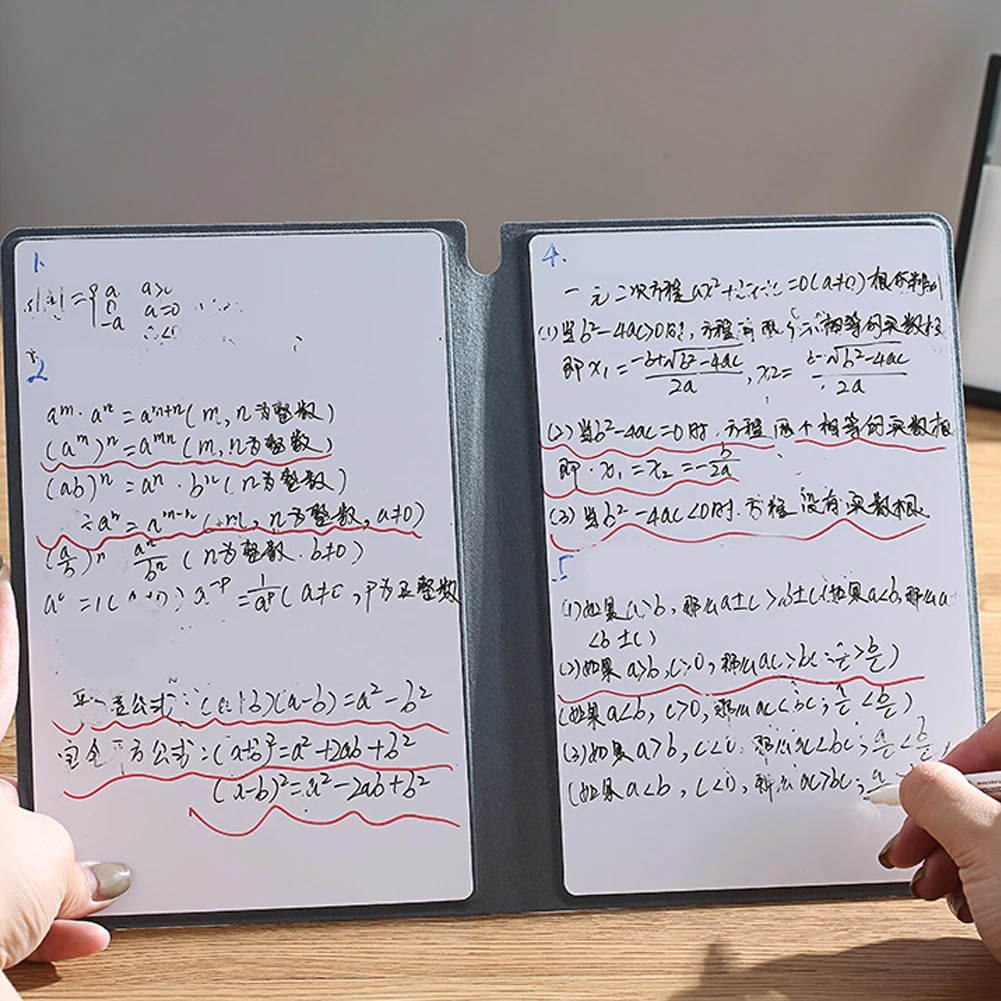 1.
= { a a>0
0 a=0
-a <0
2
aᵐ·aⁿ=aᵐ⁺ⁿ(m,n为整数)
(aᵐ)ⁿ=aᵐⁿ(m,n为整数)
(ab)ⁿ=aⁿ·bⁿ(n为整数)
÷aⁿ=aᵐ⁻ⁿ(m,n为整数,a≠0)
(a/b)ⁿ aⁿ/bⁿ (n为整数·b≠0)
a⁻ᵖ=1/aᵖ(a≠ ,p为正整数
差公式:( b)(a-b)=a²-b²
完全平方公式:(a+b)²=a²+2ab+b²
(a-b)²=a²-2ab+b²
4.
一元二次方程ax²+ =0(a≠0)根的判别
(1)当b²-4ac>0时,方程有两个不相等的实数根
即x₁=(-b+√b²-4ac)/2a,x2=(b-√b²-4ac)/2a
(2)当b²-4ac=0时,方程两个相等的实数根
即·x₁=x₂=-b/2a
(3)当b²-4ac<0时·方程没有实数根
5
(1)如果a>b,那么a±c>b±c(如果a<b,那么a
<b±c)
(2)如果a>b,c>0,那么ac>bc;a/c>b/c)
(如果a<b,c>0,那么ac<bc;a/c<b/c)
(3)如果a>b,c<0 那么ac<bc;a/c<b/c
(如果a<b,c<0,那么ac>bc;a